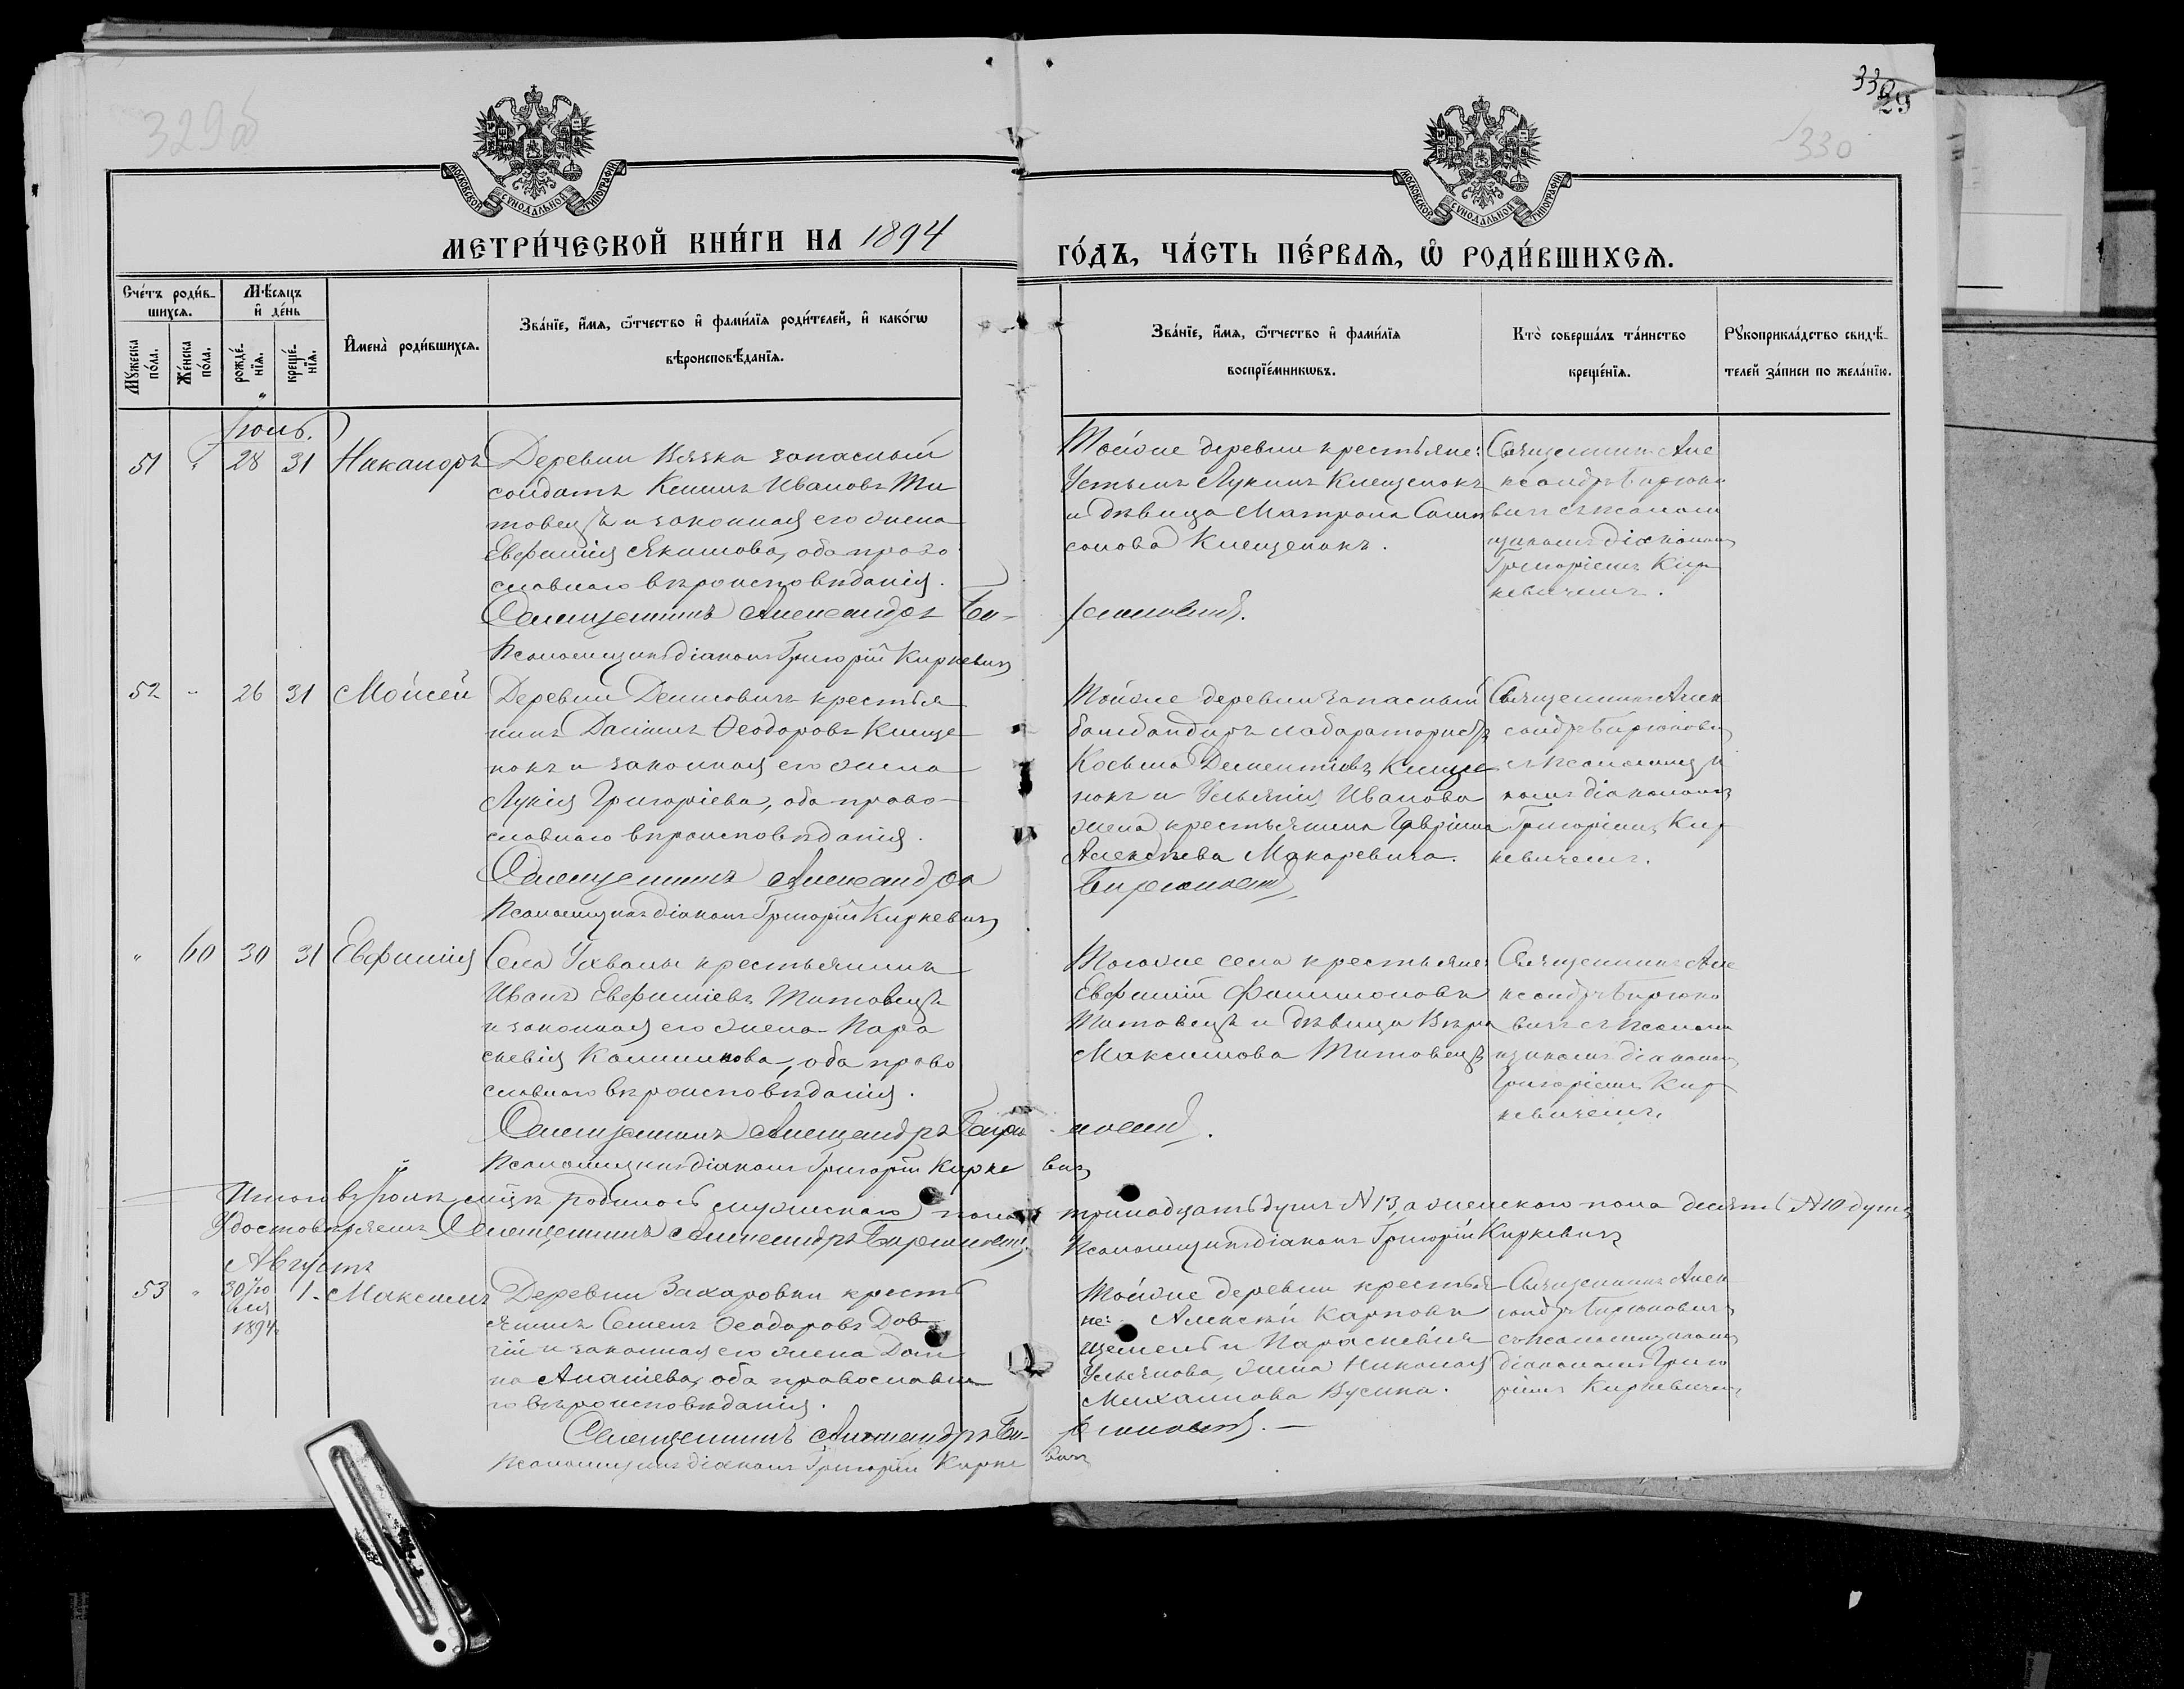 329об
330
29
330
МОСКОВСКОЙ СѴНОДАЛЬНОЙ ТИПОГРАФІИ
МОСКОВСКОЙ СѴНОДАЛЬНОЙ ТИПОГРАФІИ
МЕТРИ́ЧЕСКОЙ КНИ́ГИ НА 1894
ГО́ДЪ, ЧА́СТЬ ПЕ́РВАѦ, Ѡ҆ РОДИ́ВШИХСѦ.
Сче́тъ роди́в-
шихсѧ.
Мѣ́сѧцъ
и҆ де́нь
Мꙋ́жеска по́ла.
Же́нска по́ла.
рожде́-
нїѧ.
креще́-
нїѧ.
И҆мена̀ роди́вшихсѧ.
Зва́нїе, и҆́мѧ, ѻ҆́тчество и҆ фами́лїѧ роди́телей, и҆ како́гѡ
вѣроисповѣ́данїѧ.
Зва́нїе, и҆́мѧ, ѻ҆́тчество и҆ фами́лїѧ
воспрїе́мникѡвъ.
Кто̀ соверша́лъ та́инство
креще́нїѧ.
Рꙋкоприкла́дство свидѣ́-
телей за́писи по жела́нїю.
Іюль.
51 " 28 31 Никаноръ
Деревни Вязка запасный
солдатъ Климъ Ивановъ Ти
товецъ и законная его жена
Евфимія Якимова, оба право
славнаго вѣроисповѣданія.
Священникъ Александръ Би-
рюковичъ.
Псаломщикъ діаконъ Григорій Киркевичъ
Той же деревни крестьяне:
Устинъ Лукинъ Клещенокъ
и дѣвица Матрона Сам
сонова Клещенокъ.
Священникъ Але
ксандръ Бирюко
вичъ съ псалом
щикомъ діакономъ
Григоріемъ Кир
кевичемъ.
52 " 26 31 Моисей
Деревни Денисовичъ крестья
нинъ Даніилъ Ѳеодоровъ Клеще
нокъ и законная его жена
Лукія Григоріева, оба право-
славнаго вѣроисповѣданія.
Священникъ Александръ
Бирюковичъ
Псаломщикъ діаконъ Григорій Киркевичъ
Той же деревни запасный
бомбандиръ лабаратористъ
Косьма Дементіевъ Клеще
нокъ и Ульянія Иванова
жена крестьянина Гавріила
Алексѣева Макаревича.
Священникъ Алек
сандръ Бирюкович
съ псаломщи
комъ діакономъ
Григоріемъ Кир
кевичемъ.
" 60 30 31 Евфимія
Села Ухвалы крестьянинъ
Иванъ Евфиміевъ Титовецъ
и законная его жена Пара
скевія Калиникова, оба право
славнаго вѣроисповѣданія.
Священникъ Александръ Бирю
ковичъ.
Псаломщикъ діаконъ Григорій Кирке вичъ
Того же села крестьяне:
Евфимій Филимоновъ
Титовецъ и дѣвица Вѣра
Максимова Титовецъ
Священникъ Але
ксандръ Бирюко
вичъ съ псалом
щикомъ діакономъ
Григоріемъ Кир
кевичемъ.
Итого въ Іюлѣ м-цѣ родилось мужскаго пола тринадцать душъ № 13, а женскаго пола десять № 10 душъ
Удостовѣряемъ Священникъ Александръ Бирюковичъ.
Псаломщикъ діаконъ Григорій Киркевичъ
Августъ
53 " 30 Iю
ля
1894
1. Максимъ
Деревни Захаровки кресть
янинъ Семенъ Ѳеодоровъ Дов
гій и законная его жена Дом
на Ананіева, оба православна
го вѣроисповѣданія.
Священникъ Александръ Би-
рюковичъ.—
Псаломщикъ діаконъ Григорій Кирке вичъ
Той же деревни крестья
не: Алексѣй Карповъ
и Параскевія
Ульянова, жена Николая
Михаилова Бусика.
Священникъ Алек
сандръ Бирюковичъ
съ псаломщикомъ
діакономъ Григо
ріемъ Киркевичемъ